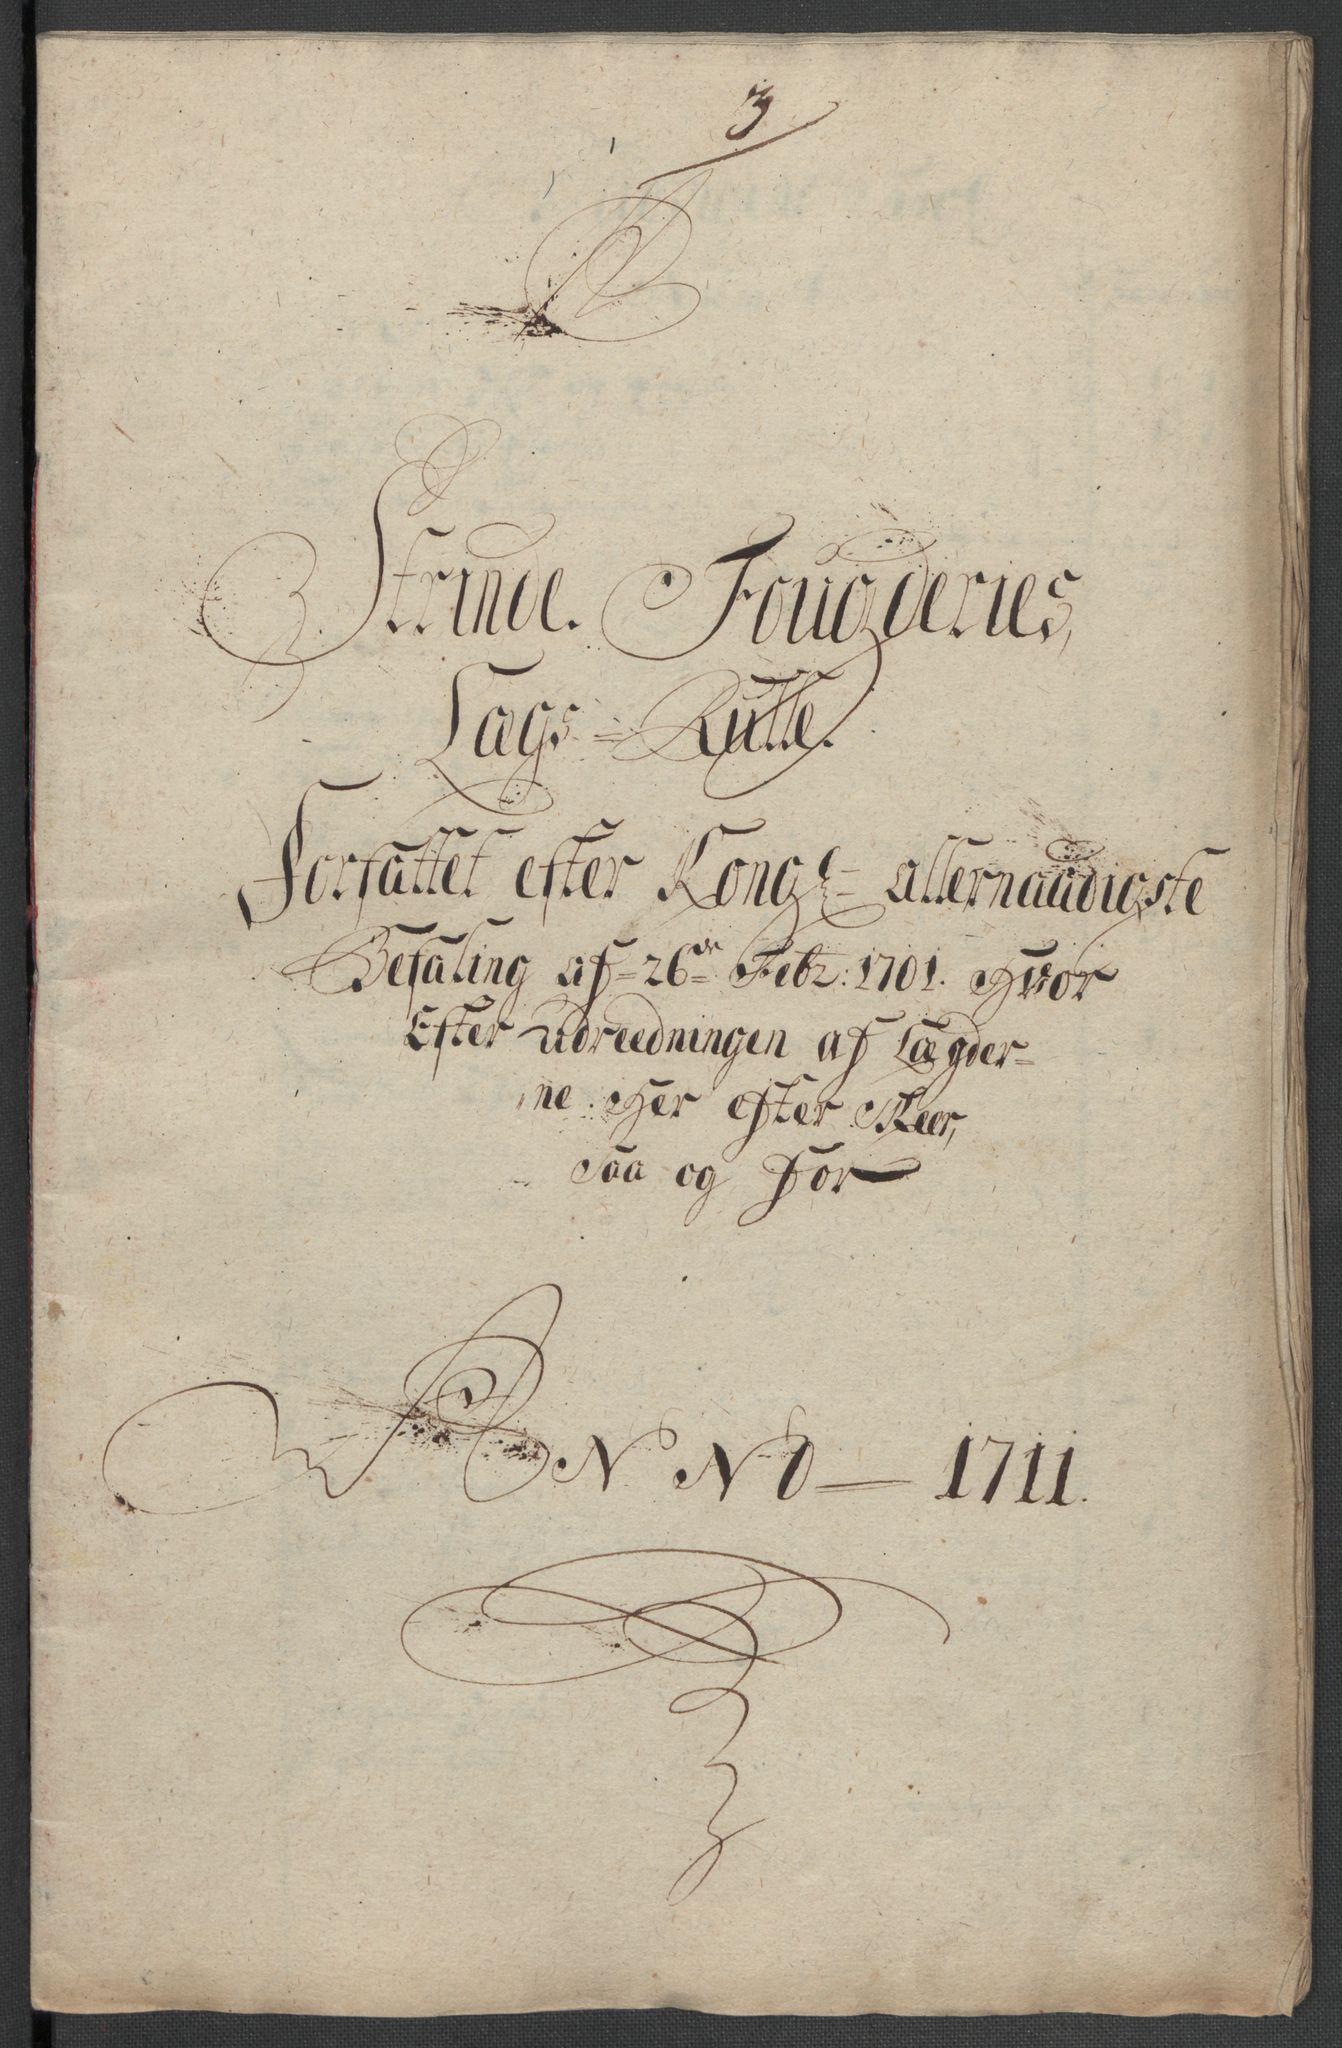 3
Strinde. Fougderies,
Lægs = Rulle.
Forfattet efter Kongl= allernaadigste
Befaling af = 26de Febr: 1701. Hvor
Efter udreedningen af Lægder=
ne Her efter Skeer,
Saa og for
ANNO — 1711.